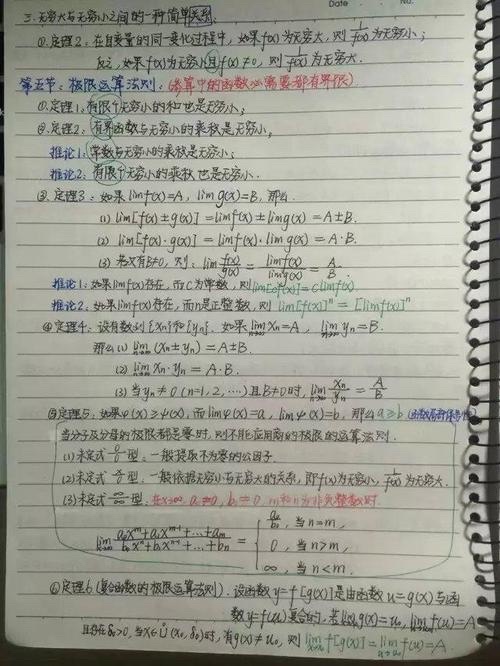 Date
三. 无穷大与无穷小之间的一种简单关系.
①. 定理2: 在自变量的同一变化过程中, 如果f(x)为无穷大, 则 1/f(x) 为无穷小;
反之, 如果f(x)为无穷小且f(x)≠0, 则 1/f(x) 为无穷大.
第五节: 极限运算法则: (运算中的函数必需要都有界限)
①定理1: 有限个无穷小的和也是无穷小;
②定理2: 有界函数与无穷小的乘积是无穷小,
推论1: 常数与无穷小的乘积是无穷小;
推论2: 有限个无穷小的乘积也是无穷小.
③定理3: 如果 lim f(x)=A, lim g(x)=B, 那么
(1) lim[f(x)±g(x)] = lim f(x) ± lim g(x) = A±B.
(2) lim[f(x)·g(x)] = lim f(x)·lim g(x) = A·B.
(3) 若又有B≠0, 则: lim f(x)/g(x) = lim f(x)/lim g(x) = A/B.
推论1: 如果lim f(x)存在, 而C为常数, 则lim[cf(x)]=c lim f(x).
推论2: 如果lim f(x)存在, 而n是正整数, 则 lim[f(x)]ⁿ = [lim f(x)]ⁿ
④定理4: 设有数列{xn}和{yn}. 如果 lim n→∞ xn=A, lim n→∞ yn=B.
那么(1) lim n→∞ (xn±yn)=A±B.
(2) lim n→∞ xn·yn = A·B.
(3) 当yn≠0 (n=1,2,……)且B≠0时, lim n→∞ xn/yn = A/B
⑤定理5: 如果φ(x)≥ψ(x), 而limφ(x)=a, limψ(x)=b, 那么a≥b (函数局部保号性)
当分子及分母的极限都是零时, 则不能应用商的极限的运算法则.
(1)未定式 0/0 型: 一般提取不为零的公因子.
(2)未定式 型: 一般依据无穷小与无穷大的关系, 即f(x)为无穷小, 1/f(x) 为无穷大.
(3)未定式 ∞/∞ 型: 在x→∞, a₀≠0, b₀≠0, m和n为非负整数时.
lim x→∞ (a₀xᵐ+a₁xᵐ⁻¹+…+am)/(b₀xⁿ+b₁xⁿ⁻¹+…+bn) = { a₀/b₀, 当n=m,
0, 当n>m,
∞, 当n<m.
⑥定理6 (复合函数的极限运算法则). 设函数y=f[g(x)]是由函数u=g(x)与函
数y=f(u)复合的, 若 lim x→x₀ g(x)=u₀, lim u→u₀ f(u)=A
且存在δ₀>0, 当x∈Ů(x₀,δ₀)时, 有g(x)≠u₀, 则 lim x→x₀ f[g(x)] = lim u→u₀ f(u)=A.